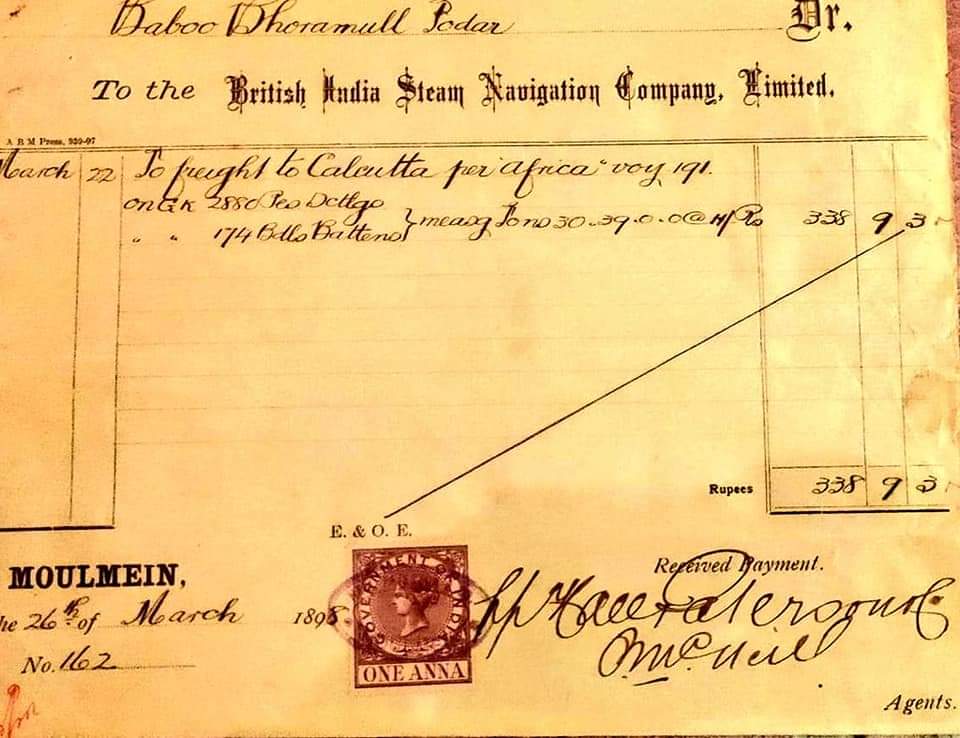 Baboo Bhoramull Podar Dr.
To the British India Steam Navigation Company, Limited.
A B M Press, 939-97
March 22 To freight to Calcutta per "Africa" voy 191.
on G K 2880 Pcs Dcttgs
" " 174 Bdls Battens } measg Tons 30-39.0.0 @ 11/ Rs 338 9 3
Rupees 338 9 3
E. & O. E.
MOULMEIN,
he 26th of March 1898
No. 162
GOVERNMENT OF INDIA
ONE ANNA
Received Payment.
pp
McNeil
Agents.